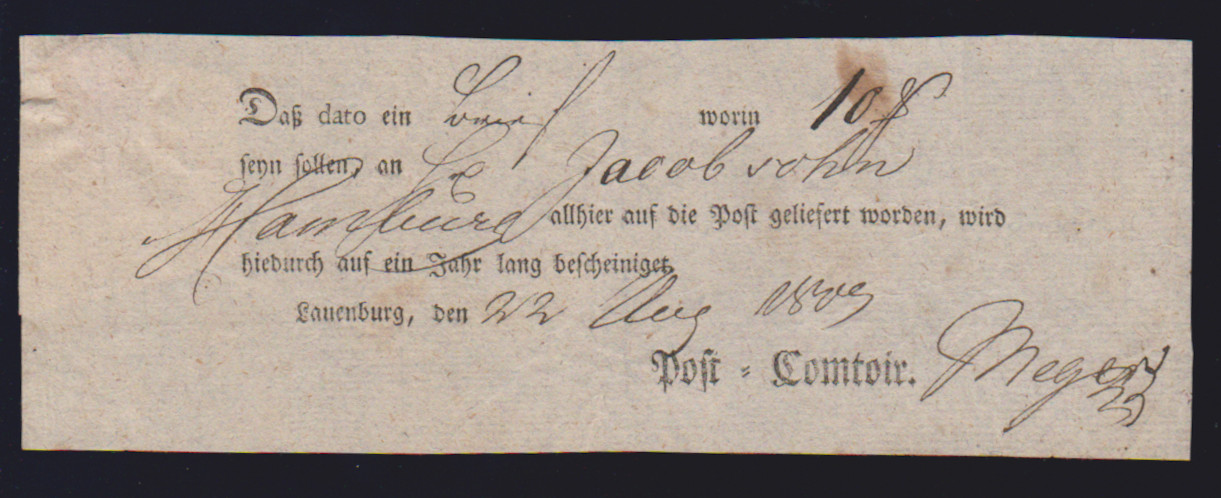 Daß dato ein Brief worin 10
seyn sollen, an H Jacobsohn
Hamburg allhier auf die Post geliefert worden, wird
hiedurch auf ein Jahr lang bescheiniget
Lauenburg, den 22 Aug 1809
Post-Comtoir. Meyer